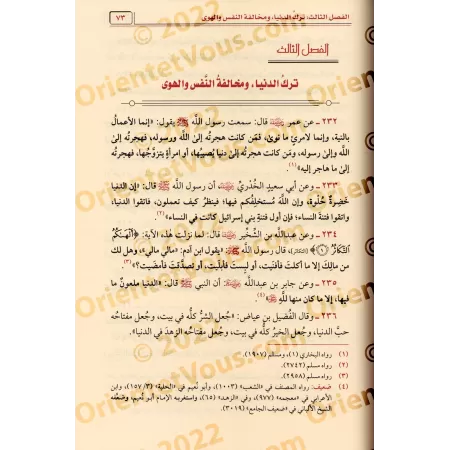 ٧٣ الفصل الثالث: ترك الدنيا، ومخالفة النفس والهوى
الفصل الثالث
تركُ الدنيا، ومخالفةُ النَّفس والهوى
٢٣٢ ـ عن عمر قال: سمعت رسول اللَّه ﷺ يقول: «إنما الأعمالُ
بالنية، وإنما لامرئٍ ما نوىٰ، فمَن كانت هجرتُه إلىٰ اللَّه ورسوله، فهجرتُه
إلىٰ اللَّه وإلىٰ رسوله، ومَن كانت هجرتُه إلىٰ دنيا يُصيبُها، أو امرأةٍ يتزوَّجُها، فهجرتُه
إلىٰ ما هاجر إليه»(١).
٢٣٣ ـ وعن أبي سعيدٍ الخُدْريِّ أن رسول اللَّه ﷺ قال: «إن الدنيا
خَضِرةٌ حُلْوة، وإن اللَّه مُستخلِفُكم فيها؛ فينظرُ كيف تعملون، فاتقوا الدنيا،
واتقوا فتنةَ النساء؛ فإن أول فتنةِ بني إسرائيل كانت في النساء»(٢).
٢٣٤ ـ وعن عبداللَّه بن الشِّخِّير قال: لما نزلت هٰذه الآية: ﴿أَلْهَىٰكُمُ
ٱلتَّكَاثُرُ ۝١﴾ [التكاثر]، قال رسول اللَّه ﷺ: «يقول ابن آدم: «مالي مالي»، وهل لك
من مالِكَ إلا ما أكلتَ فأفنيتَ، أو لبِستَ فأبلَيتَ، أو تصدَّقتَ فأمضَيتَ؟»(٣).
٢٣٥ ـ وعن جابر بن عبداللَّه أن النبي ﷺ قال: «الدنيا ملعونٌ ما
فيها، إلا ما كان منها للَّهِ»(٤)
٢٣٦ ـ وقال الفُضَيل بن عياض: «جُعل الشرُّ كلُّه في بيت، وجُعل مفتاحُه
حبَّ الدنيا، وجُعل الخيرُ كلُّه في بيت، وجُعل مفتاحُه الزهدَ في الدنيا».
(١) رواه البخاري (١)، ومسلم (١٩٠٧).
(٢) رواه مسلم (٢٧٤٢).
(٣) رواه مسلم (٢٩٥٨).
(٤) ضعيف: رواه المصنف في «الشعب» (١٠٠٣)، وأبو نُعيم في «الحلية» (٣/ ١٥٧)، وابن
الأعرابي في «معجمه» (٩٧٧)، وفي «الزهد» (٦٥)، واستغربه الإمام أبو نُعيم، وضعَّفه
الشيخ الألباني في «ضعيف الجامع» (٣٠١٩).
© 2022
OrientetVous.com